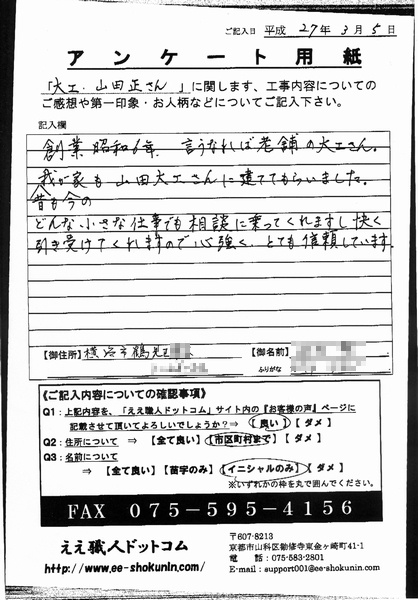 ご記入日 平成 27年 3月 5日
アンケート用紙
「大工・山田正さん 」に関します、工事内容についての
ご感想や第一印象・お人柄などについてご記入下さい。
記入欄
創業昭和6年、言うなれば老舗の大工さん。
我が家も山田大工さんに建ててもらいました。
昔も今の
どんな小さな仕事でも相談に乗ってくれますし快く
引き受けてくれますので心強く、とても信頼しています。
【御住所】横浜市鶴見区
【御名前】
ふりがな
《ご記入内容についての確認事項》
Q1：上記内容を、「ええ職人ドットコム」サイト内の『お客様の声』ページに
記載させて頂いてよろしいでしょうか？⇒ 【 良い 】 【 ダメ 】
Q2：住所について ⇒ 【全て良い】【市区町村まで】【 ダメ 】
Q3：名前について
⇒ 【全て良い】【苗字のみ】【イニシャルのみ】【 ダメ 】
※いずれかの枠を丸で囲んでください。
FAX 075-595-4156
ええ職人ドットコム
http://www.ee-shokunin.com/
〒607-8213
京都市山科区勧修寺東金ヶ崎町41-1
電 話：075-583-2801
E-mail：support001@ee-shokunin.com